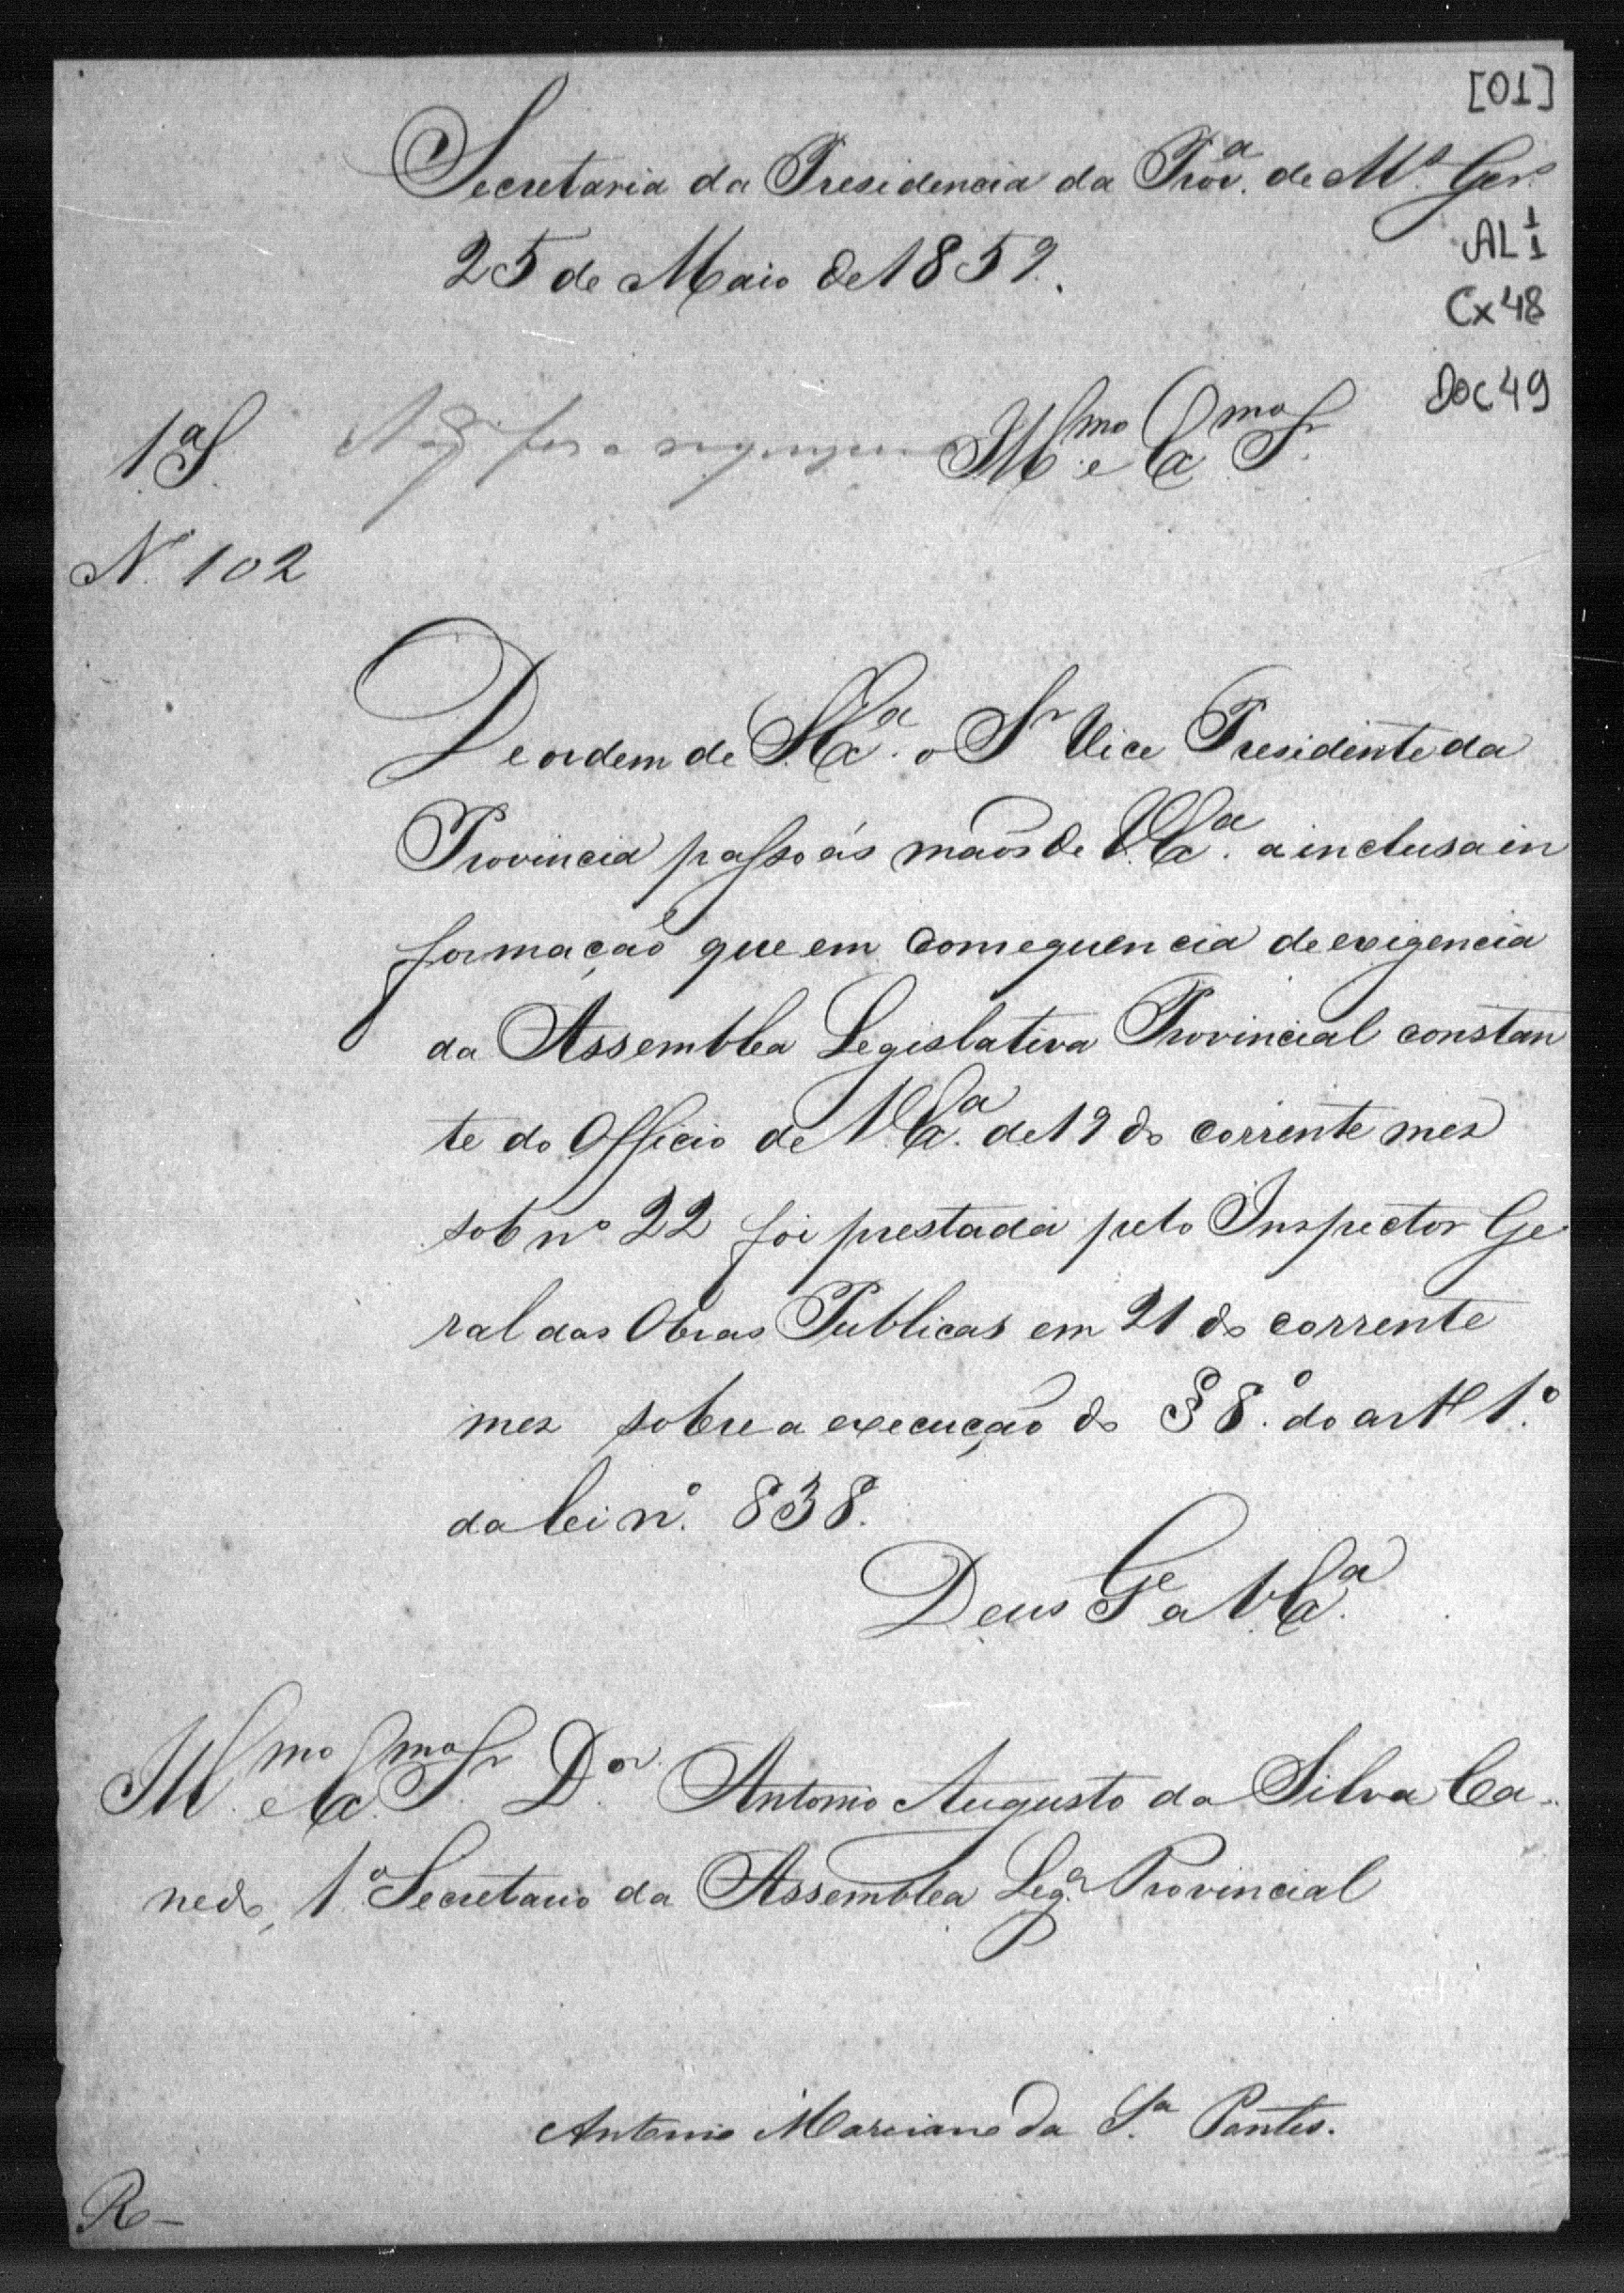 [01]
Secretaria da Presidencia da Prov.ª de M.s Ger.s
25 de Maio de 1859.
AL 1/1
Cx 48
Doc 49
1ª S.
Ill.mo e Ex.mo Sr.
N. 102
De ordem de S. Ex.ª o Sr Vice Presidente da
Provincia passo ás mãos de V. Ex.ª a inclusa in
formação que em consequencia de exigencia
da Assemblea Legislativa Provincial constan
te do Officio de V. Ex.ª de 19 do corrente mez
sob nº 22 foi prestada pelo Inspector Ge
ral das Obras Publicas em 21 do corrente
mez sobre a execução do § 8.º do artº 1.º
da lei n.º 838.
Deus G.e a V. Ex.ª
Ill.mo e Ex.mo Sr. D.or Antonio Augusto da Silva Ca-
nedo, 1.º Secretario da Assemblea Leg.ª Provincial
Antonio Marciano da S.ª Pontes.
R-